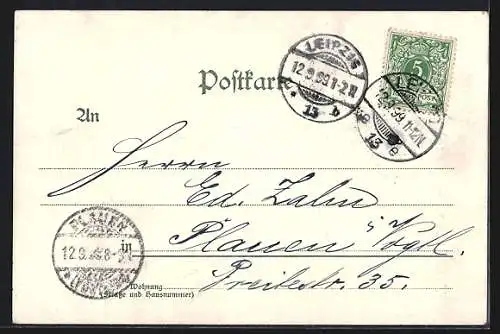 LEIPZIG
12.9.99.1-2N.
* 13 b
5
LEIPZIG
12.9.99.1-2N.
13 e
Postkarte
An
Herrn
Ed. Zahn
in Plauen i. Vogtl.
PLAUEN
12.9.99.8-
(VOGTL.)
Breitestr. 35.
Wohnung
(Straße und Hausnummer)